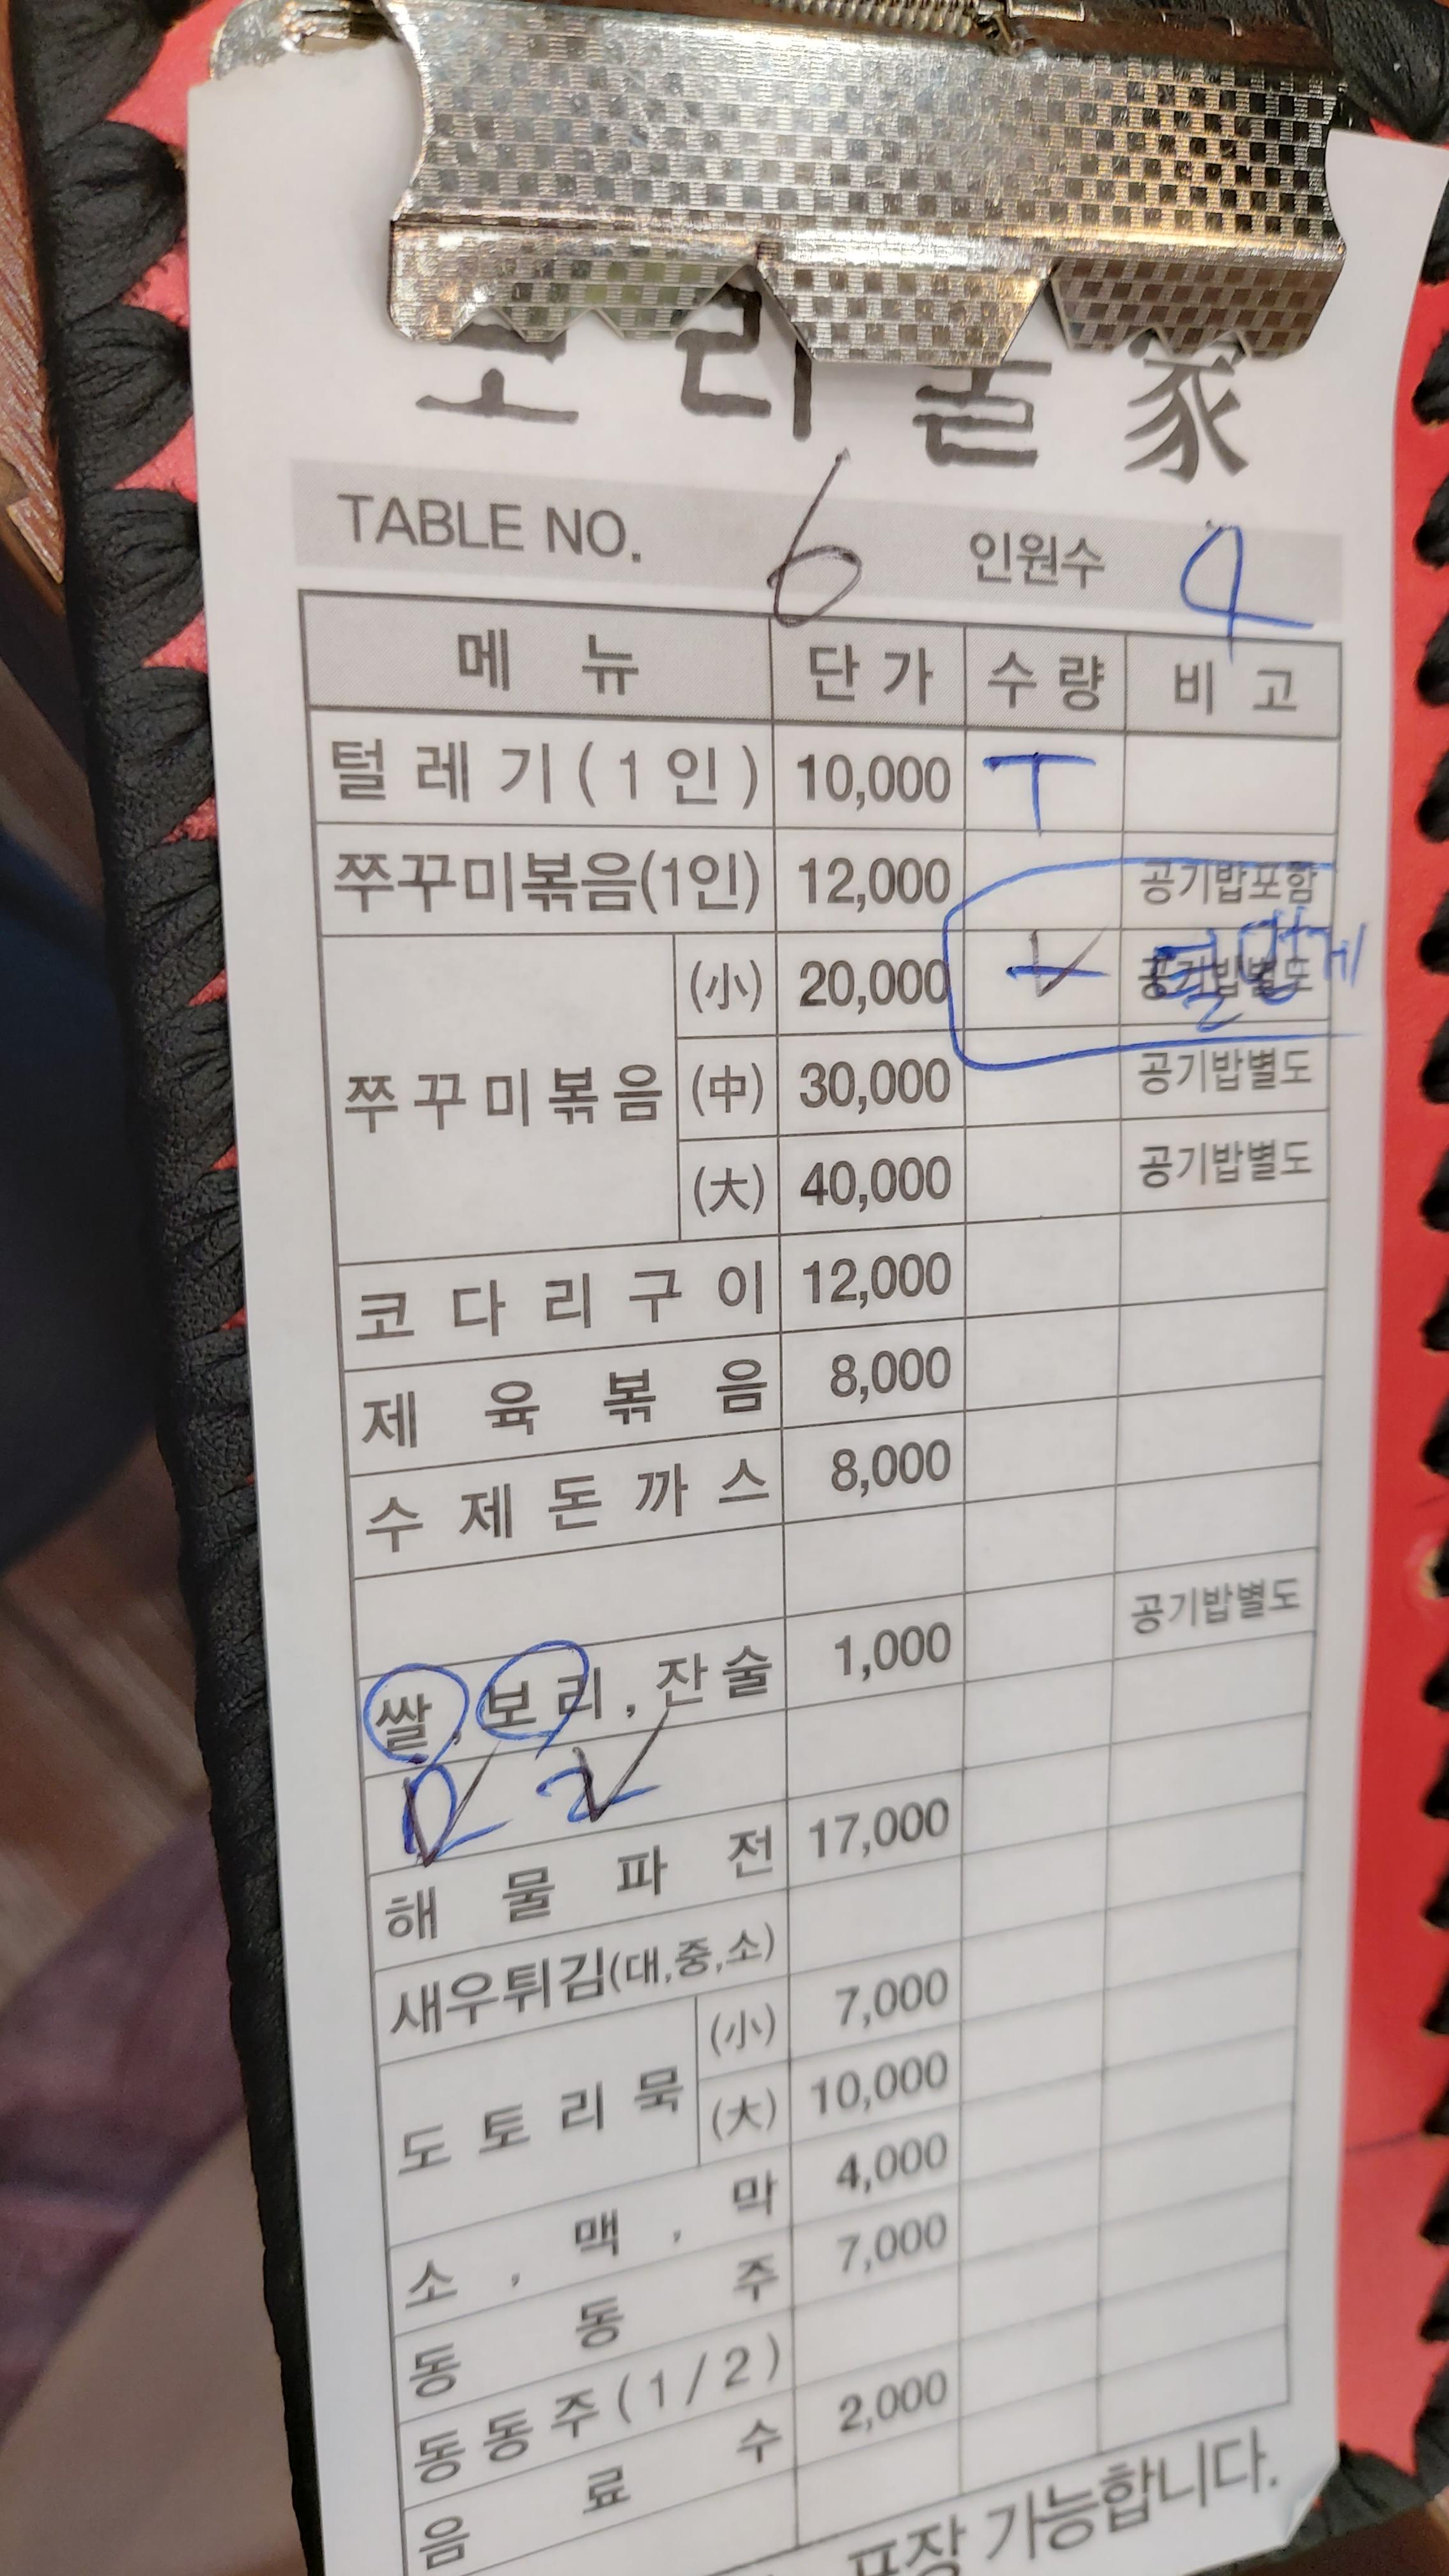 보리울家
TABLE NO. 6 인원수 4
메 뉴 단 가 수 량 비 고
털 레 기 ( 1 인 ) 10,000 T
쭈꾸미볶음(1인) 12,000 공기밥포함
쭈꾸미볶음 (小) 20,000 공기밥별도
(中) 30,000 공기밥별도
(大) 40,000 공기밥별도
코 다 리 구 이 12,000
제 육 볶 음 8,000
수 제 돈 까 스 8,000
공기밥별도
쌀 , 보 리 , 잔 술 1,000
2 2
해 물 파 전 17,000
새우튀김(대,중,소)
도 토 리 묵 (小) 7,000
(大) 10,000
소 , 맥 , 막 4,000
동 동 주 7,000
동 동 주 ( 1 / 2 )
음 료 수 2,000
포장 가능합니다.